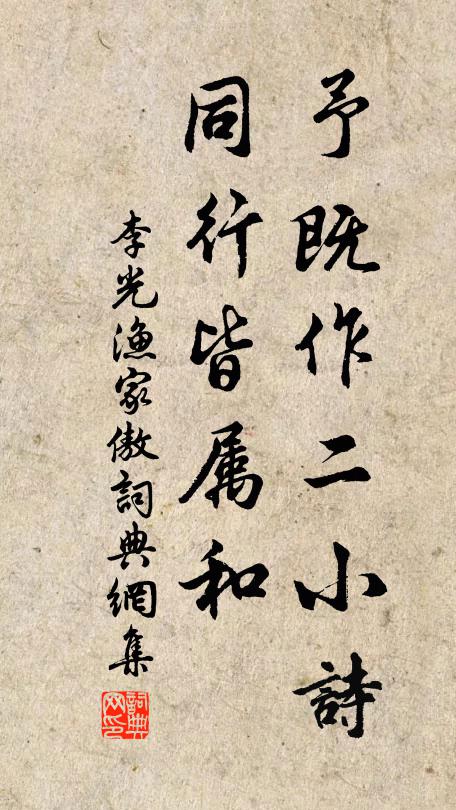 予既作二小詩
同行皆属和
李光漁家傲詞典網集
詞典网印